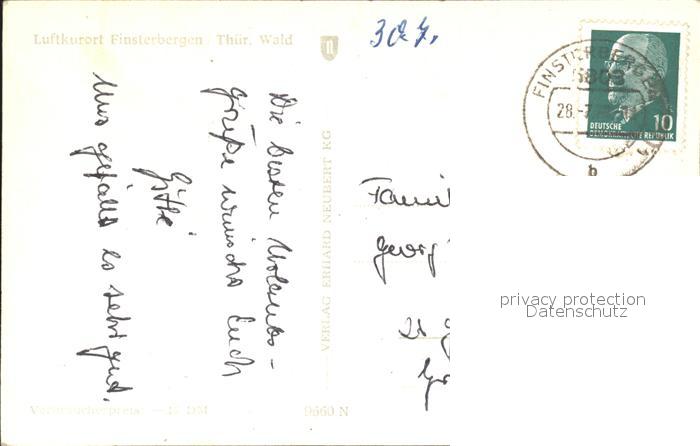 Luftkurort Finsterbergen Thür. Wald
30 7.
Die besten Urlaubs-
grüße wünscht Euch
Gitte.
Uns gefällt es sehr gut.
VERLAG ERHARD NEUBERT KG
Famil
Georg
FINSTERBERGEN
5803
28.-7.
b
10
DEUTSCHE
DEMOKRATISCHE REPUBLIK
privacy protection
Datenschutz
Verbraucherpreis DM
9660 N